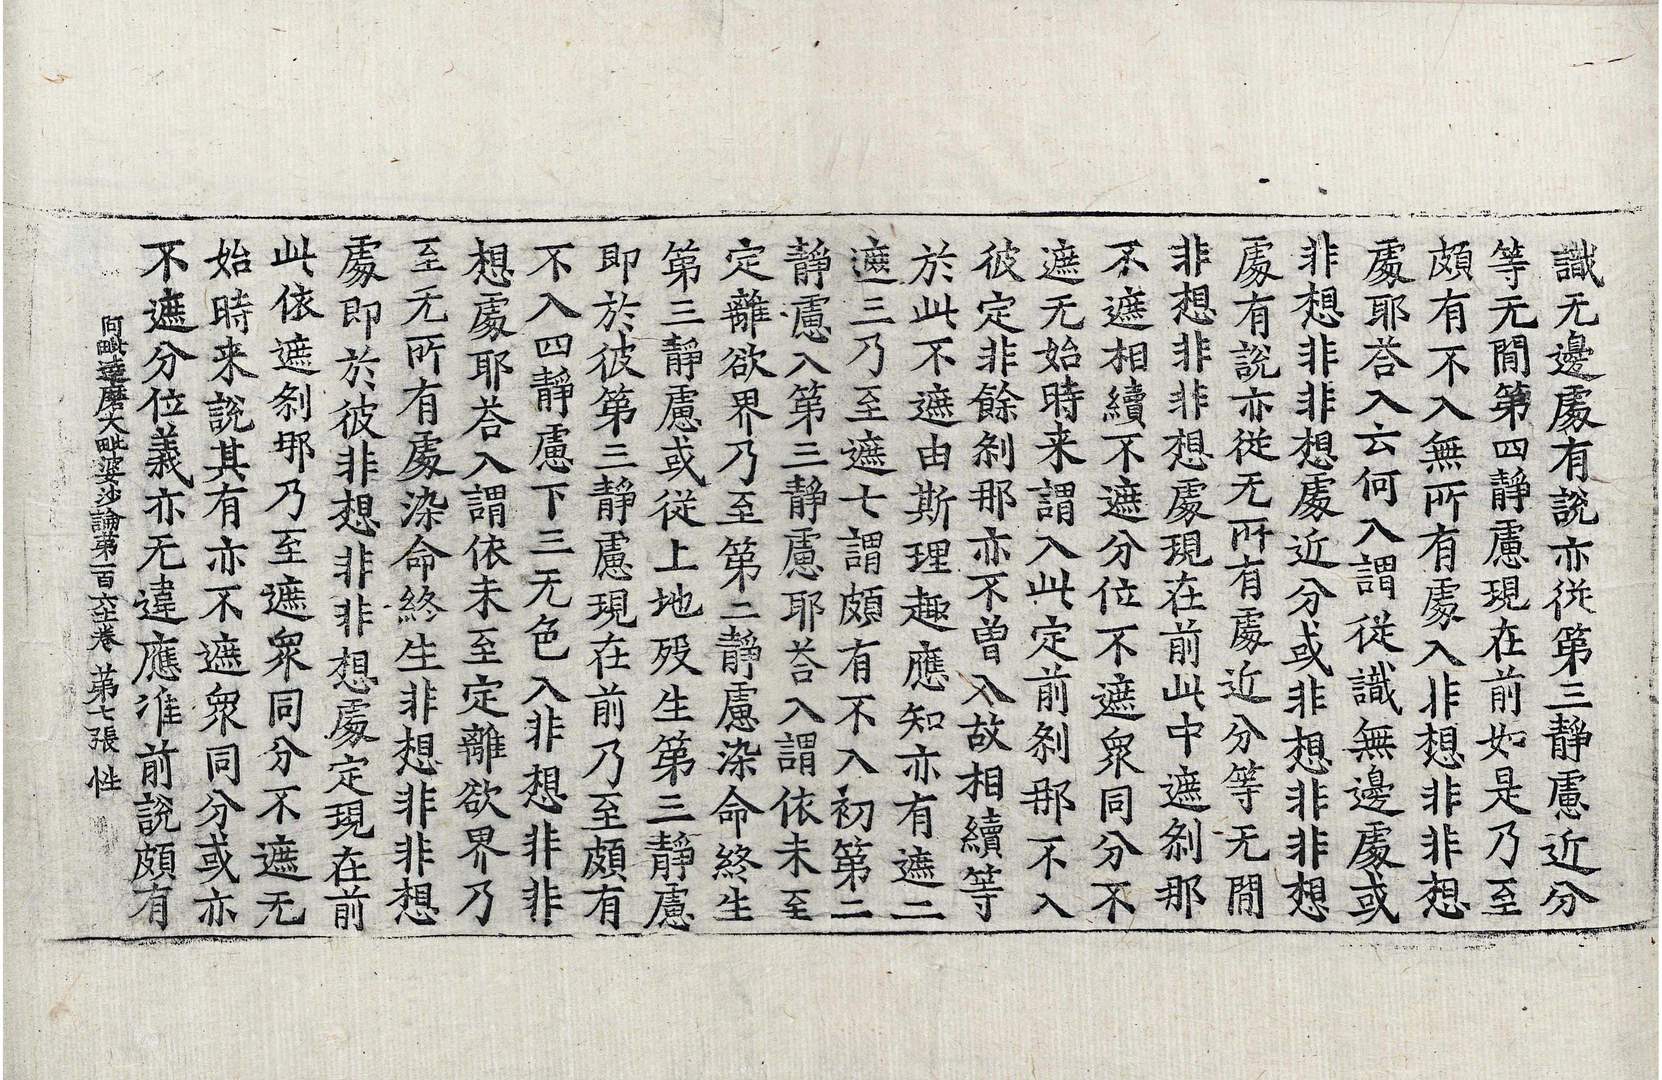 識无邊處有說亦従第三靜慮近分
等无間第四靜慮現在前如是乃至
頗有不入無所有處入非想非非想
處耶荅入云何入謂従識無邊處或
非想非非想處近分或非想非非想
處有說亦従无所有處近分等无間
非想非非想處現在前此中遮刹那
不遮相續不遮分位不遮衆同分不
遮无始時来謂入此定前刹那不入
彼定非餘刹那亦不曾入故相續等
於此不遮由斯理趣應知亦有遮二
遮三乃至遮七謂頗有不入初第二
靜慮入第三靜慮耶荅入謂依未至
定離欲界乃至第二靜慮染命終生
第三靜慮或従上地歿生第三靜慮
即於彼第三靜慮現在前乃至頗有
不入四靜慮下三无色入非想非非
想處耶荅入謂依未至定離欲界乃
至无所有處染命終生非想非非想
處即於彼非想非非想處定現在前
此依遮刹那乃至遮衆同分不遮无
始時来說其有亦不遮衆同分或亦
不遮分位義亦无違應准前說頗有
阿毗達磨大毗婆沙論第一百六十三卷 第七張 性